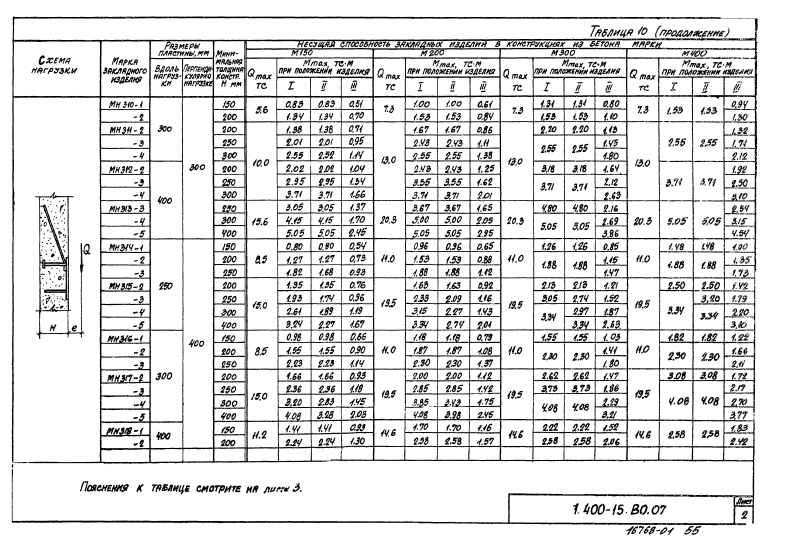 Таблица 10 (продолжение)
Схема нагрузки
Марка закладного изделия
Размеры пластины, мм
Вдоль нагрузки
Перпендикулярно нагрузке
Минимальная толщина констр. H мм
Несущая способность закладных изделий в конструкциях из бетона марки
М150 М200 М300 М400
Q max тс
М max, тс·м при положении изделия
I II III
МН310-1 150 5.6 0.83 0.83 0.51 7.3 1.00 1.00 0.61 7.3 1.31 1.31 0.80 7.3 1.53 1.53 0.94
-2 300 200 1.34 1.34 0.70 1.53 1.53 0.84 1.53 1.53 1.10 1.30
МН311-2 200 10.0 1.38 1.38 0.71 13.0 1.67 1.67 0.86 13.0 2.20 2.20 1.13 13.0 2.55 2.55 1.32
-3 250 2.01 2.01 0.95 2.43 2.43 1.11 2.55 2.55 1.45 1.71
-4 300 2.55 2.52 1.14 2.55 2.55 1.38 1.80 2.12
МН312-2 400 300 200 2.02 2.02 1.04 2.43 2.43 1.25 3.18 3.18 1.64 3.71 3.71 1.92
-3 250 2.95 2.95 1.34 3.55 3.55 1.62 3.71 3.71 2.12 2.50
-4 300 3.71 3.71 1.66 3.71 3.71 2.01 2.63 3.10
МН313-3 250 15.6 3.05 3.05 1.37 20.3 3.67 3.67 1.65 20.3 4.80 4.80 2.16 20.3 5.05 5.05 2.54
-4 300 4.15 4.15 1.70 5.00 5.00 2.05 5.05 5.05 2.69 3.15
-5 400 5.05 5.05 2.45 5.05 5.05 2.95 3.86 4.54
МН314-1 250 400 150 8.5 0.80 0.80 0.54 11.0 0.96 0.96 0.65 11.0 1.26 1.26 0.85 11.0 1.48 1.48 1.00
-2 200 1.27 1.27 0.73 1.53 1.53 0.88 1.88 1.88 1.15 1.88 1.88 1.35
-3 250 1.82 1.68 0.93 1.88 1.88 1.12 1.47 1.73
МН315-2 200 15.0 1.35 1.35 0.76 19.5 1.63 1.63 0.92 19.5 2.13 2.13 1.21 19.5 2.50 2.50 1.42
-3 250 1.93 1.74 0.96 2.33 2.09 1.16 3.05 2.74 1.52 3.34 3.20 1.79
-4 300 2.61 1.89 1.19 3.15 2.27 1.43 3.34 2.97 1.87 3.34 2.20
-5 400 3.24 2.27 1.67 3.34 2.74 2.01 3.34 2.63 3.10
МН316-1 300 150 8.5 0.98 0.98 0.66 11.0 1.18 1.18 0.79 11.0 1.55 1.55 1.03 11.0 1.82 1.82 1.22
-2 200 1.55 1.55 0.90 1.87 1.87 1.08 2.30 2.30 1.41 2.30 2.30 1.66
-3 250 2.23 2.23 1.14 2.30 2.30 1.37 1.80 2.11
МН317-2 200 15.0 1.66 1.66 0.93 19.5 2.00 2.00 1.12 19.5 2.62 2.62 1.47 19.5 3.08 3.08 1.72
-3 250 2.36 2.36 1.18 2.85 2.85 1.42 3.73 3.73 1.86 4.08 4.08 2.17
-4 300 3.20 2.83 1.45 3.85 3.43 1.75 4.08 4.08 2.29 2.70
-5 400 4.08 3.28 2.03 4.08 3.98 2.45 3.21 3.77
МН318-1 400 150 11.2 1.41 1.41 0.93 14.6 1.70 1.70 1.16 14.6 2.22 2.22 1.52 14.6 2.58 2.58 1.83
-2 200 2.24 2.24 1.30 2.58 2.58 1.57 2.58 2.58 2.06 2.42
Q
H e
Пояснения к таблице смотрите на листе 3.
1.400-15.В0.07
Лист
2
16768-01 55